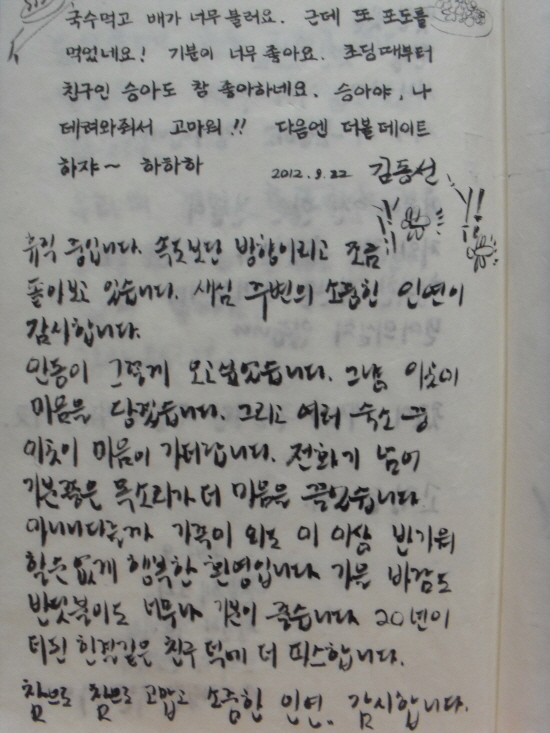 국수먹고 배가 너무 불러요. 근데 또 포도를
먹었네요! 기분이 너무 좋아요. 초딩때부터
친구인 승아도 참 좋아하네요. 승아야, 나
데려와줘서 고마워!! 다음엔 더블데이트
하쟈~ 하하하 2012.9.22 김동선
휴직 중입니다. 속도보단 방향이라고 조금
돌아보고 있습니다. 새삼 주변의 소중한 인연이
감사합니다.
안동이 그렇게 오고싶었습니다. 그냥 이곳이
마음을 당겼습니다. 그리고 여러 숙소 중
이곳이 마음이 가더랍니다. 전화기 넘어
기분좋은 목소리가 더 마음을 끌었습니다
아니나다를까 가족이 와도 이 이상 반가워
할 순 없게 행복한 환영입니다 가을 바람도
반딧불이도 너무나 기분이 좋습니다 20년이
다된 한결같은 친구 덕에 더 따스합니다.
참으로 참으로 고맙고 소중한 인연. 감사합니다.